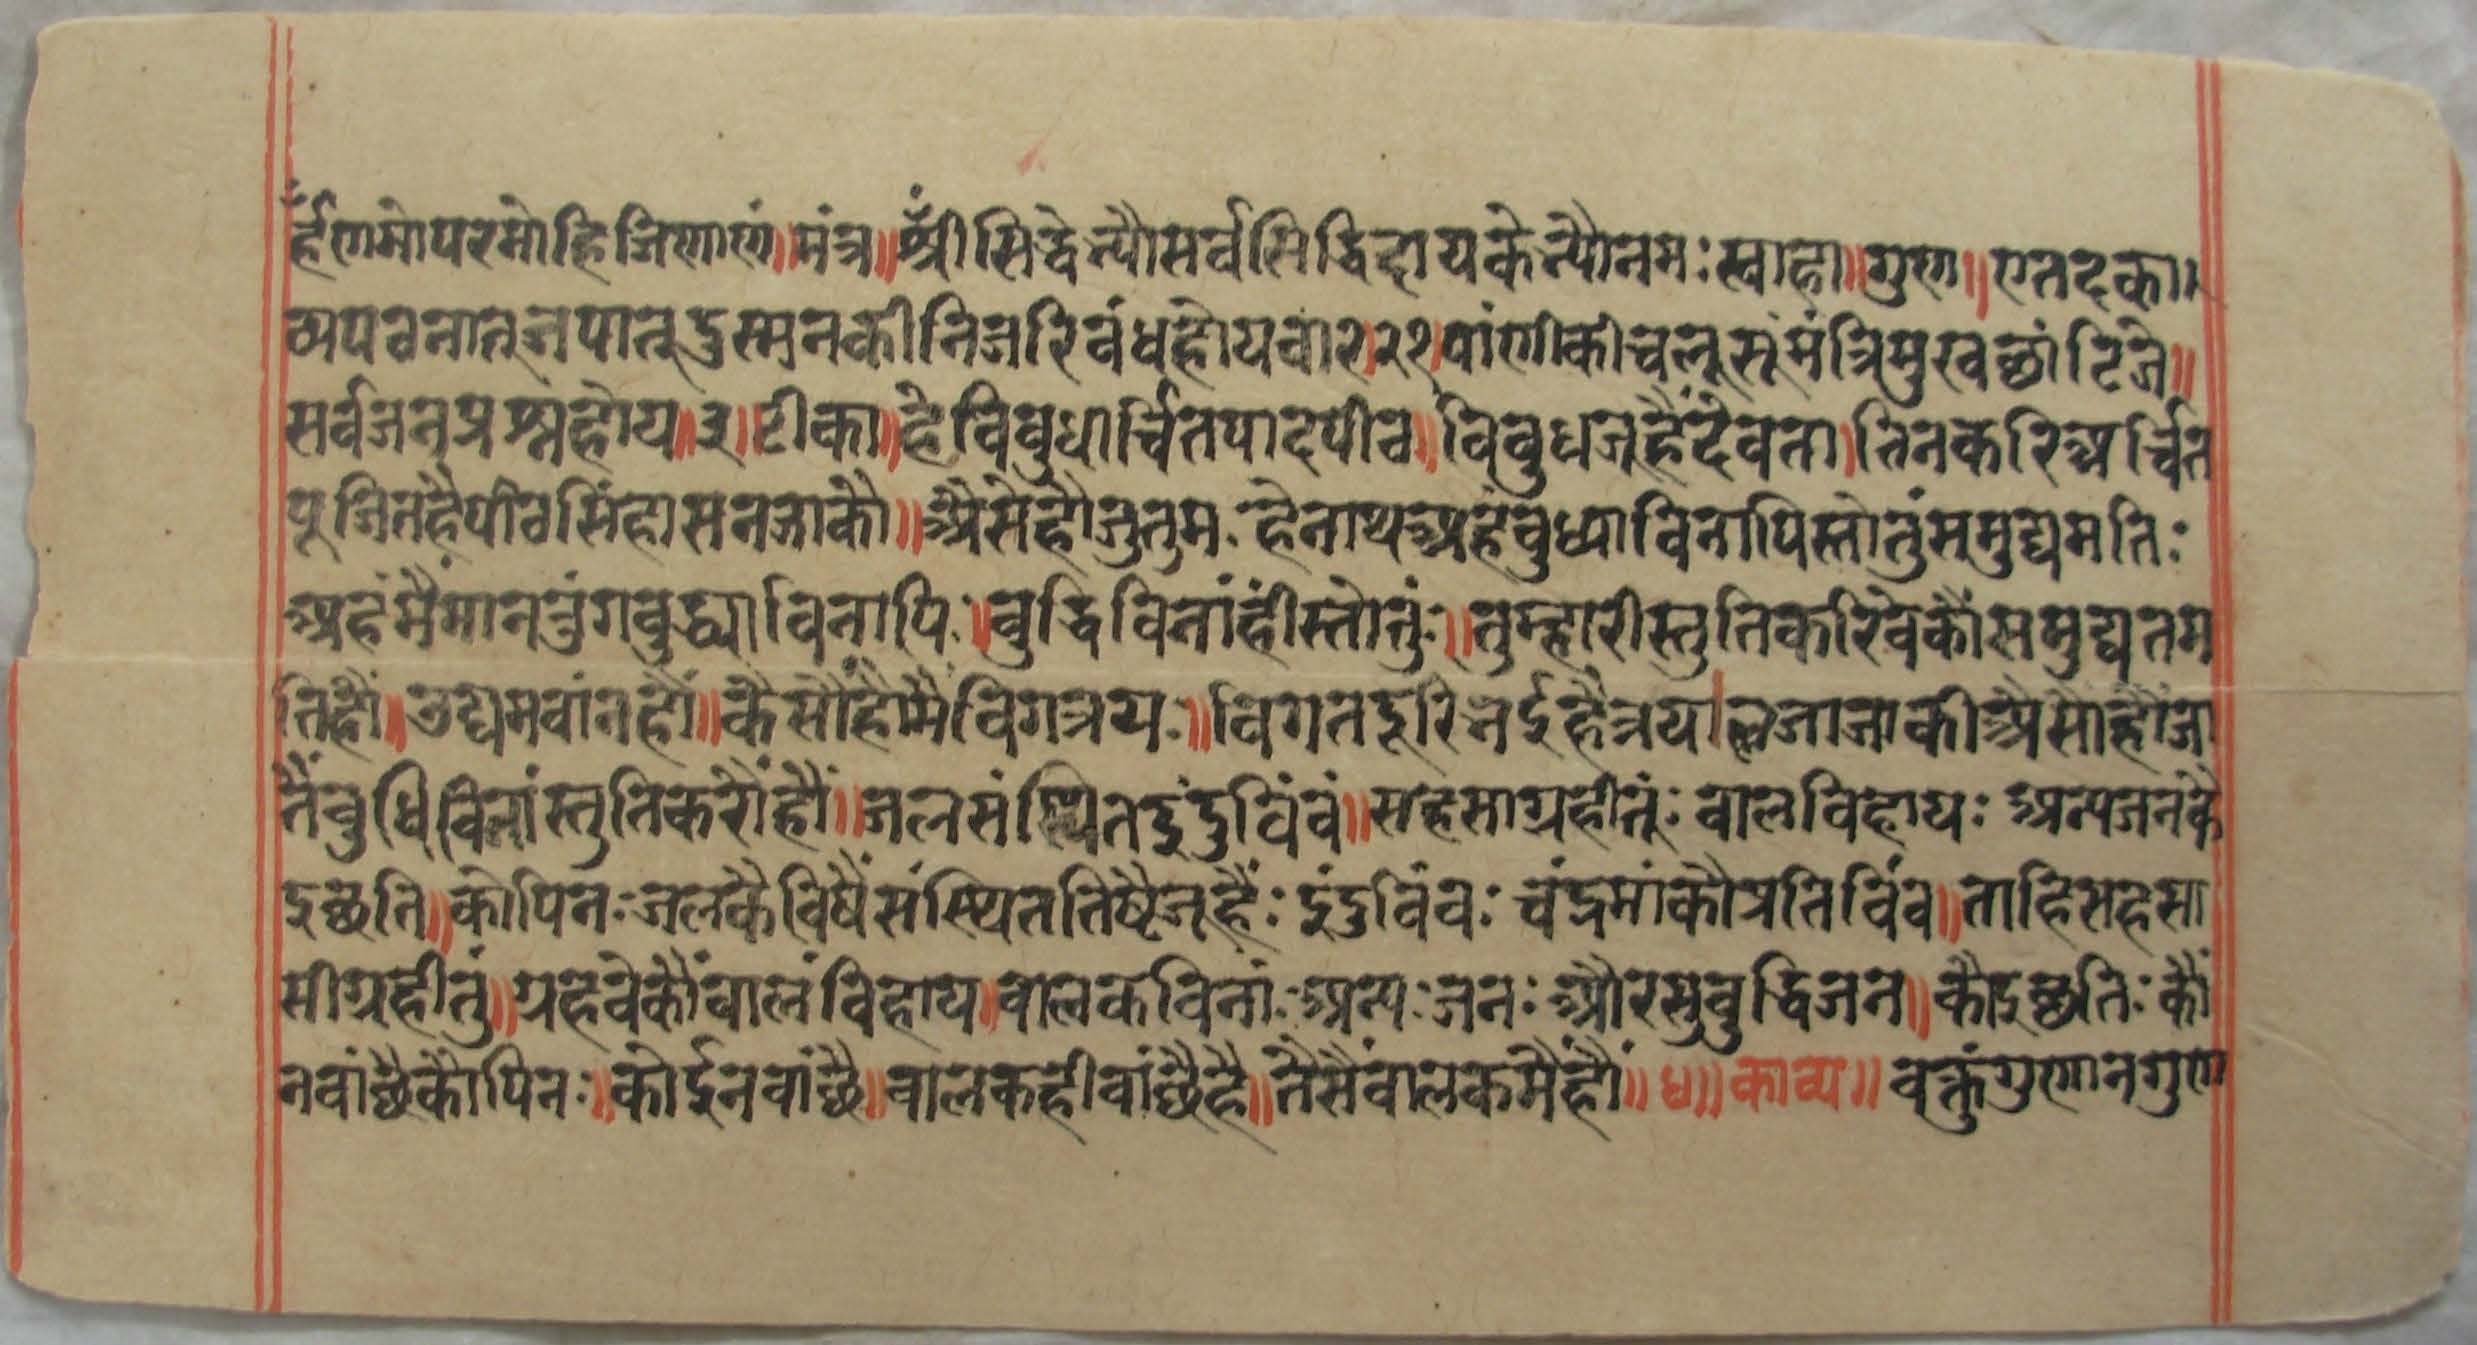 र्हंणमोपरमोहिजिणाणं॥मंत्र॥श्रीँसिद्धेभ्यौसर्वसिद्धिदायकेभ्यौनमःस्वाहा॥गुण॥एतदका।
व्यपठनात्जपात्दुस्मनकीनिजरिवंधहोयवार।२१।पांणीकीचलूसूंमंत्रिमुखछांटिजे॥
सर्वजनप्रश्नंहोय॥३॥टीका॥हेविवुधार्चितपादपीठ॥विवुधजूहैंदेवता।तिनकरिअर्चित
पूजितहैपीठसिंहासनजाकौ॥अैसेहौजुतुम.हेनाथअहंवुध्याविनापिस्तोतुंसमुद्यमतिः
अहंमैंमानतुंगवुद्ध्याविनापि:॥वुद्धिविनांहींस्तोतुं:॥तुम्हारीस्तुतिकरिवेकौंसमुद्यतम
तिहौं॥उद्यमवांनहौं॥कैसौंहौंमैंविगत्रय:॥विगतदूरिभईहैत्रयालजाजाकीअैसोहौंजा
तैंवुधिविनांस्तुतिकरौंहौं॥जलसंस्थितइंदुविंवं॥सहसाग्रहीतुं:वालविहायःअन्यजनकै
इछति॥कोपिन:जलकैविषैंसंस्थिततिष्टैजूहैं:इंदुविंवःचंद्रमांकौप्रतिविंव॥ताहिसहसा
सीग्रहीतुं॥ग्रहवेकौंवालंविहाय॥वालकविनां:अन्य:जन:औरसुवुद्धिजन॥कौइछति:कौं
नवांछैकौपिन:॥कोईनवांछै॥वालकहीवांछैहै॥तैसैंवालकमैंहौं॥ध॥काव्य॥वक्तुंगुणानगुण